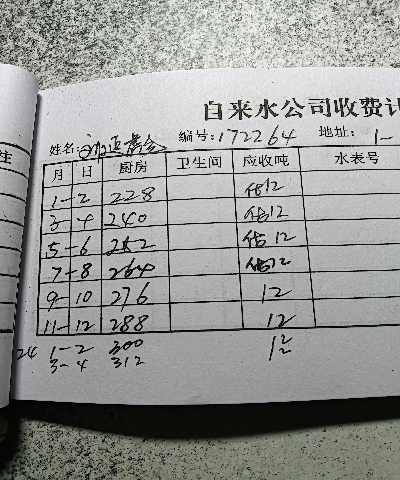 自来水公司收费
姓名: 编号:172264 地址:1-
月 日 厨房 卫生间 应收吨 水表号
1-2 228 估12
3-4 240 估12
5-6 252 估12
7-8 264 估12
9-10 276 12
11-12 288 12
24 1-2 300 12
3-4 312 12
注